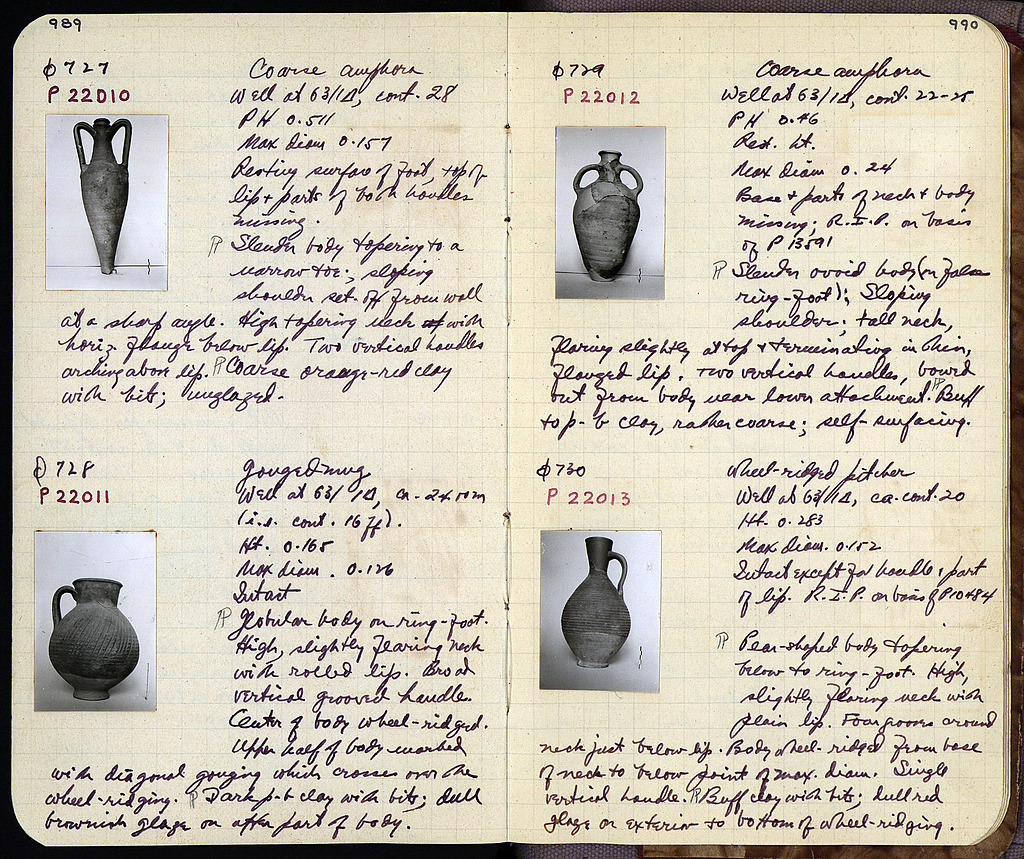 989
Φ727
P 22010
Coarse amphora
Well at 63/ΙΔ, cont. 28
PH 0.511
Max diam 0.157
Resting surface of foot, top of
lip + parts of both handles
missing.
Slender body tapering to a
narrow toe; sloping
shoulder set off from wall
at a sharp angle. High tapering neck with
horiz. flange below lip. Two vertical handles
arching above lip. ¶ Coarse orange-red clay
with bits; unglazed.
Φ728
P 22011
Gouged mug
Well at 63/ΙΔ, ca. 24.00m
(i.e. cont. 16 ff).
Ht. 0.165
Max diam. 0.126
Intact
¶ Globular body on ring-foot.
High, slightly flaring neck
with rolled lip. Broad
vertical grooved handle.
Center of body wheel-ridged.
Upper half of body marked
with diagonal gouging which crosses over the
wheel-ridging. ¶ Dark p-b clay with bits; dull
brownish glaze on after part of body.
990
Φ729
P 22012
Coarse amphora
Well at 63/ΙΔ, cont. 22-25
PH 0.46
Rest. ht.
Max diam 0.24
Base + parts of neck + body
missing; R.I.P. on basis
of P 13591
¶ Slender ovoid body (on false
ring-foot); Sloping
shoulder; tall neck,
flaring slightly at top + terminating in thin,
flanged lip. Two vertical handles, bowed
out from body near lower attachment. ¶ Buff
to p-b clay, rather coarse; self-surfacing.
Φ730
P 22013
Wheel-ridged pitcher
Well at 63/ΙΔ, ca. cont. 20
Ht. 0.283
Max diam. 0.152
Intact except for handle + part
of lip. R.I.P. on basis of P 10484
¶ Pear-shaped body tapering
below to ring-foot. High,
slightly flaring neck with
plain lip. Four grooves around
neck just below lip. Body wheel-ridged from base
of neck to below point of max. diam. Single
vertical handle. ¶ Buff clay with bits; dull red
glaze on exterior to bottom of wheel-ridging.